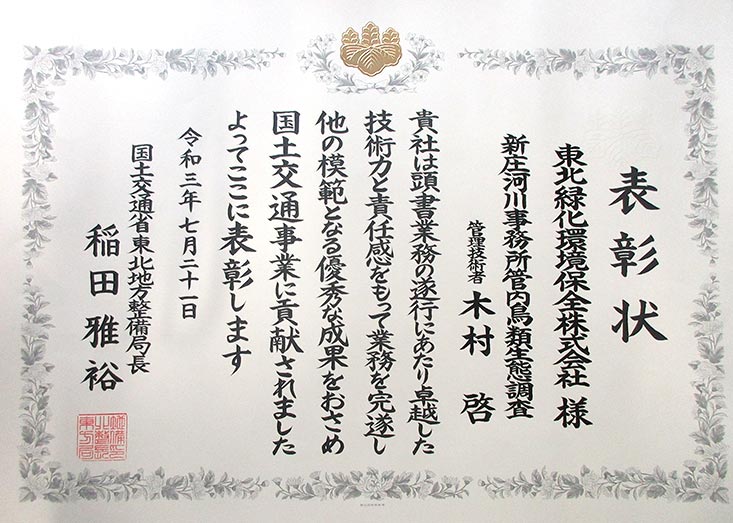 表彰状
東北緑化環境保全株式会社 様
新庄河川事務所管内鳥類生態調査
管理技術者 木村 啓
貴社は頭書業務の遂行にあたり卓越した
技術力と責任感をもって業務を完遂し
他の模範となる優秀な成果をおさめ
国土交通事業に貢献されました
よってここに表彰します
令和三年七月二十一日
国土交通省東北地方整備局長
稲田雅裕